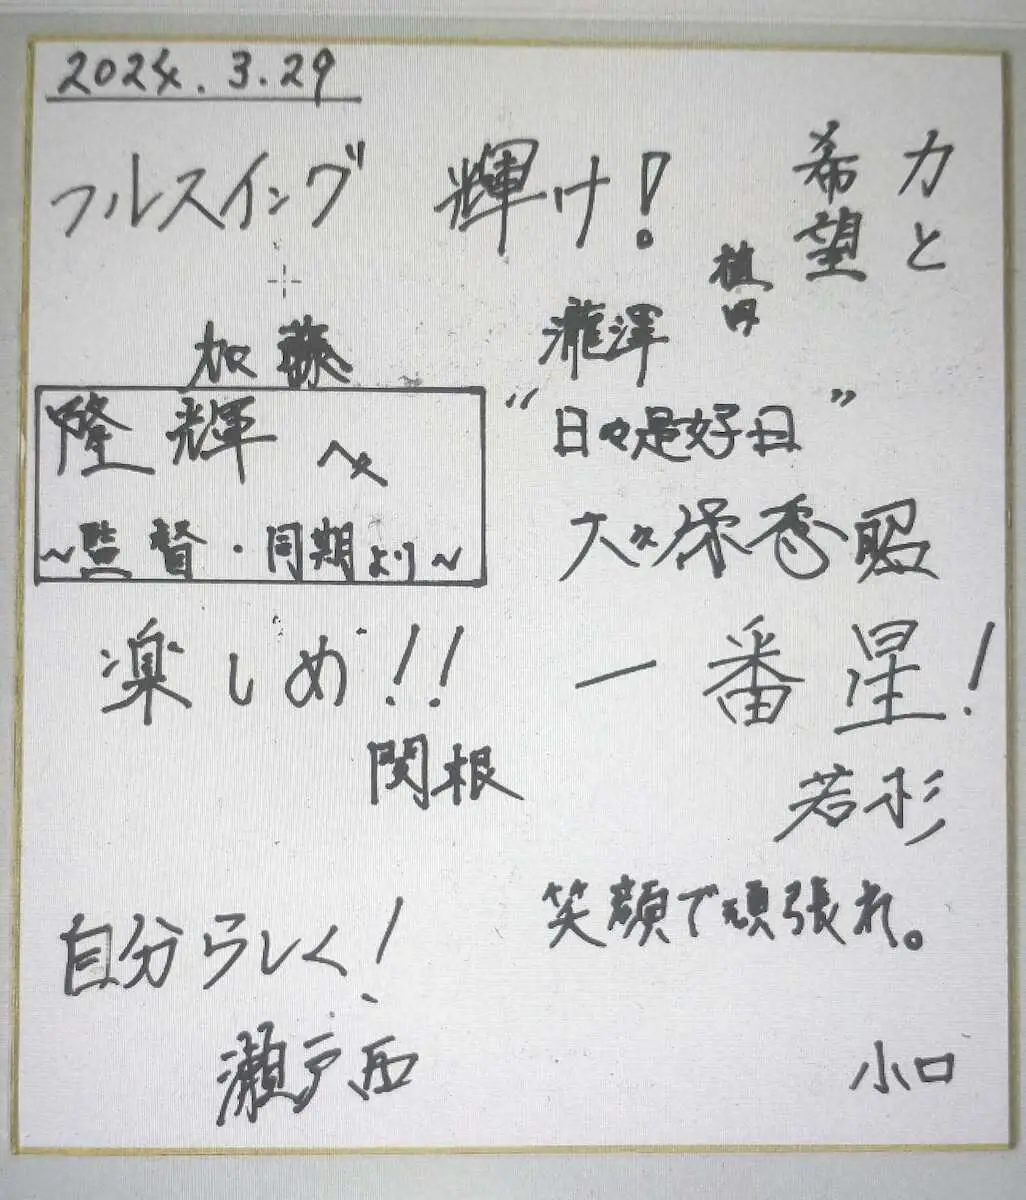 2024.3.29
フルスイング
加藤
輝け!
瀧澤
力と
希望
植田
隆輝へ
~監督・同期より~
"日々是好日"
大久保秀昭
楽しめ!!
関根
一番星!
若杉
自分らしく!
瀬戸西
笑顔で頑張れ。
小口